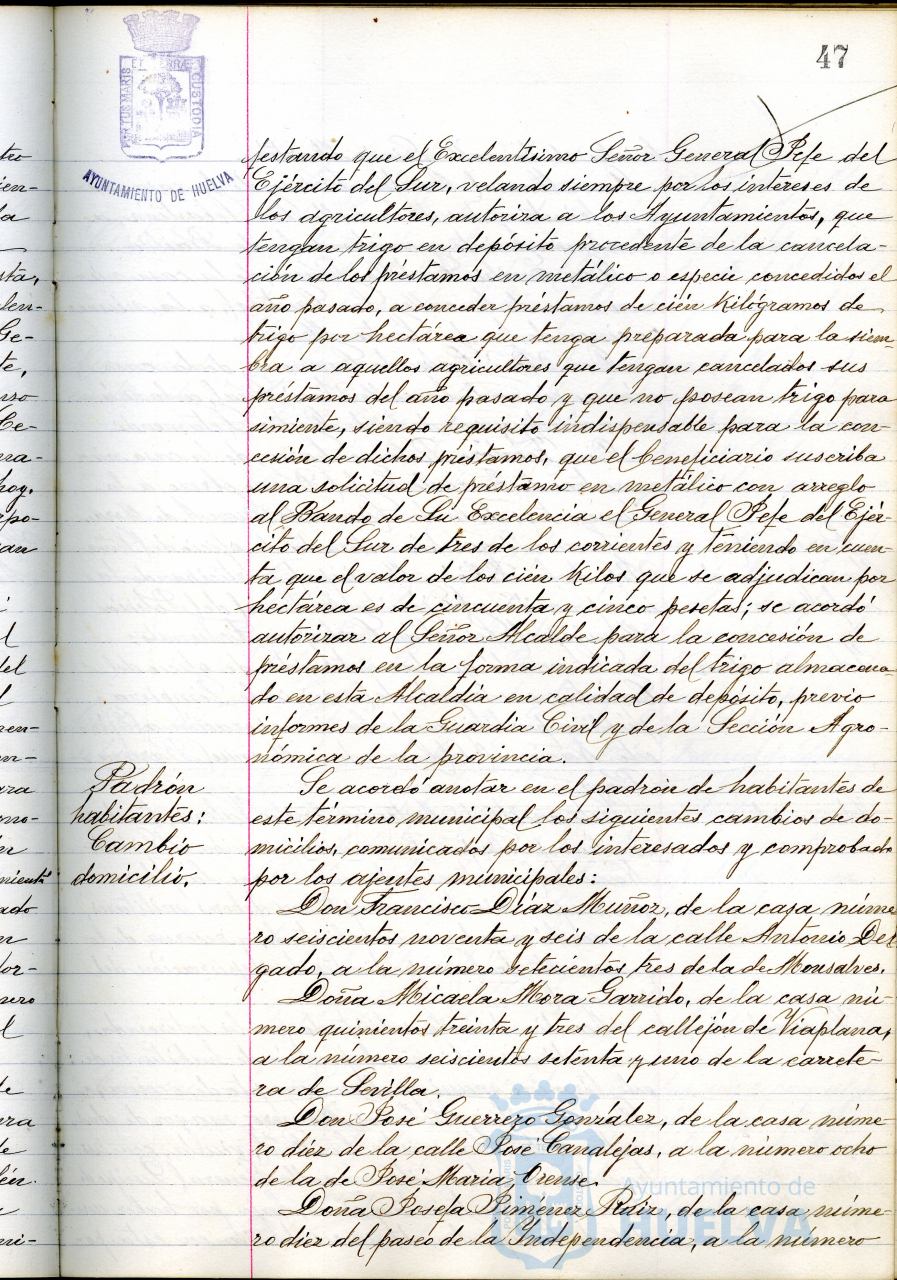 47
PORTUS MARIS ET TERRAE CUSTODIA
AYUNTAMIENTO DE HUELVA
festando que el Excelentísimo Señor General Jefe del
Ejército del Sur, velando siempre por los intereses de
los agricultores, autoriza a los Ayuntamientos, que
tengan trigo en depósito procedente de la cancela-
ción de los préstamos en metálico o especie concedidos el
año pasado, a conceder préstamos de cién Kilógramos de
trigo por hectárea que tenga preparada para la siem-
bra a aquellos agricultores que tengan cancelados sus
préstamos del año pasado y que no posean trigo para
simiente, siendo requisito indispensable para la con-
cesión de dichos préstamos, que el beneficiario suscriba
una solicitud de préstamo en metálico con arreglo
al Bando de Su Excelencia el General Jefe del Ejér-
cito del Sur de tres de los corrientes y teniendo en cuen-
ta que el valor de los cién Kilos que se adjudican por
hectárea es de cincuenta y cinco pesetas; se acordó
autorizar al Señor Alcalde para la concesión de
préstamos en la forma indicada del trigo almacena-
do en esta Alcaldía en calidad de depósito, previo
informes de la Guardia Civil y de la Sección Agro-
nómica de la provincia.
Padrón
habitantes:
Cambio
domicilio.
Se acordó anotar en el padrón de habitantes de
este término municipal los siguientes cambios de do-
micilios, comunicados por los interesados y comprobado
por los ajentes municipales:
Don Francisco Díaz Muñoz, de la casa núme-
ro seiscientos noventa y seis de la calle Antonio Del
gado, a la número setecientos tres de la de Monsalves.
Doña Micaela Mora Garrido, de la casa nú-
mero quinientos treinta y tres del callejón de Viaplana,
a la número seiscientos setenta y uno de la carrete-
ra de Sevilla.
Don José Guerrero González, de la casa núme-
ro diéz de la calle José Canalejas, a la número ocho
de la de José María Orense.
Doña Josefa Jiménez Ruíz, de la casa núme-
ro diez del paseo de la Independencia, a la número
Ayuntamiento de
HUELVA